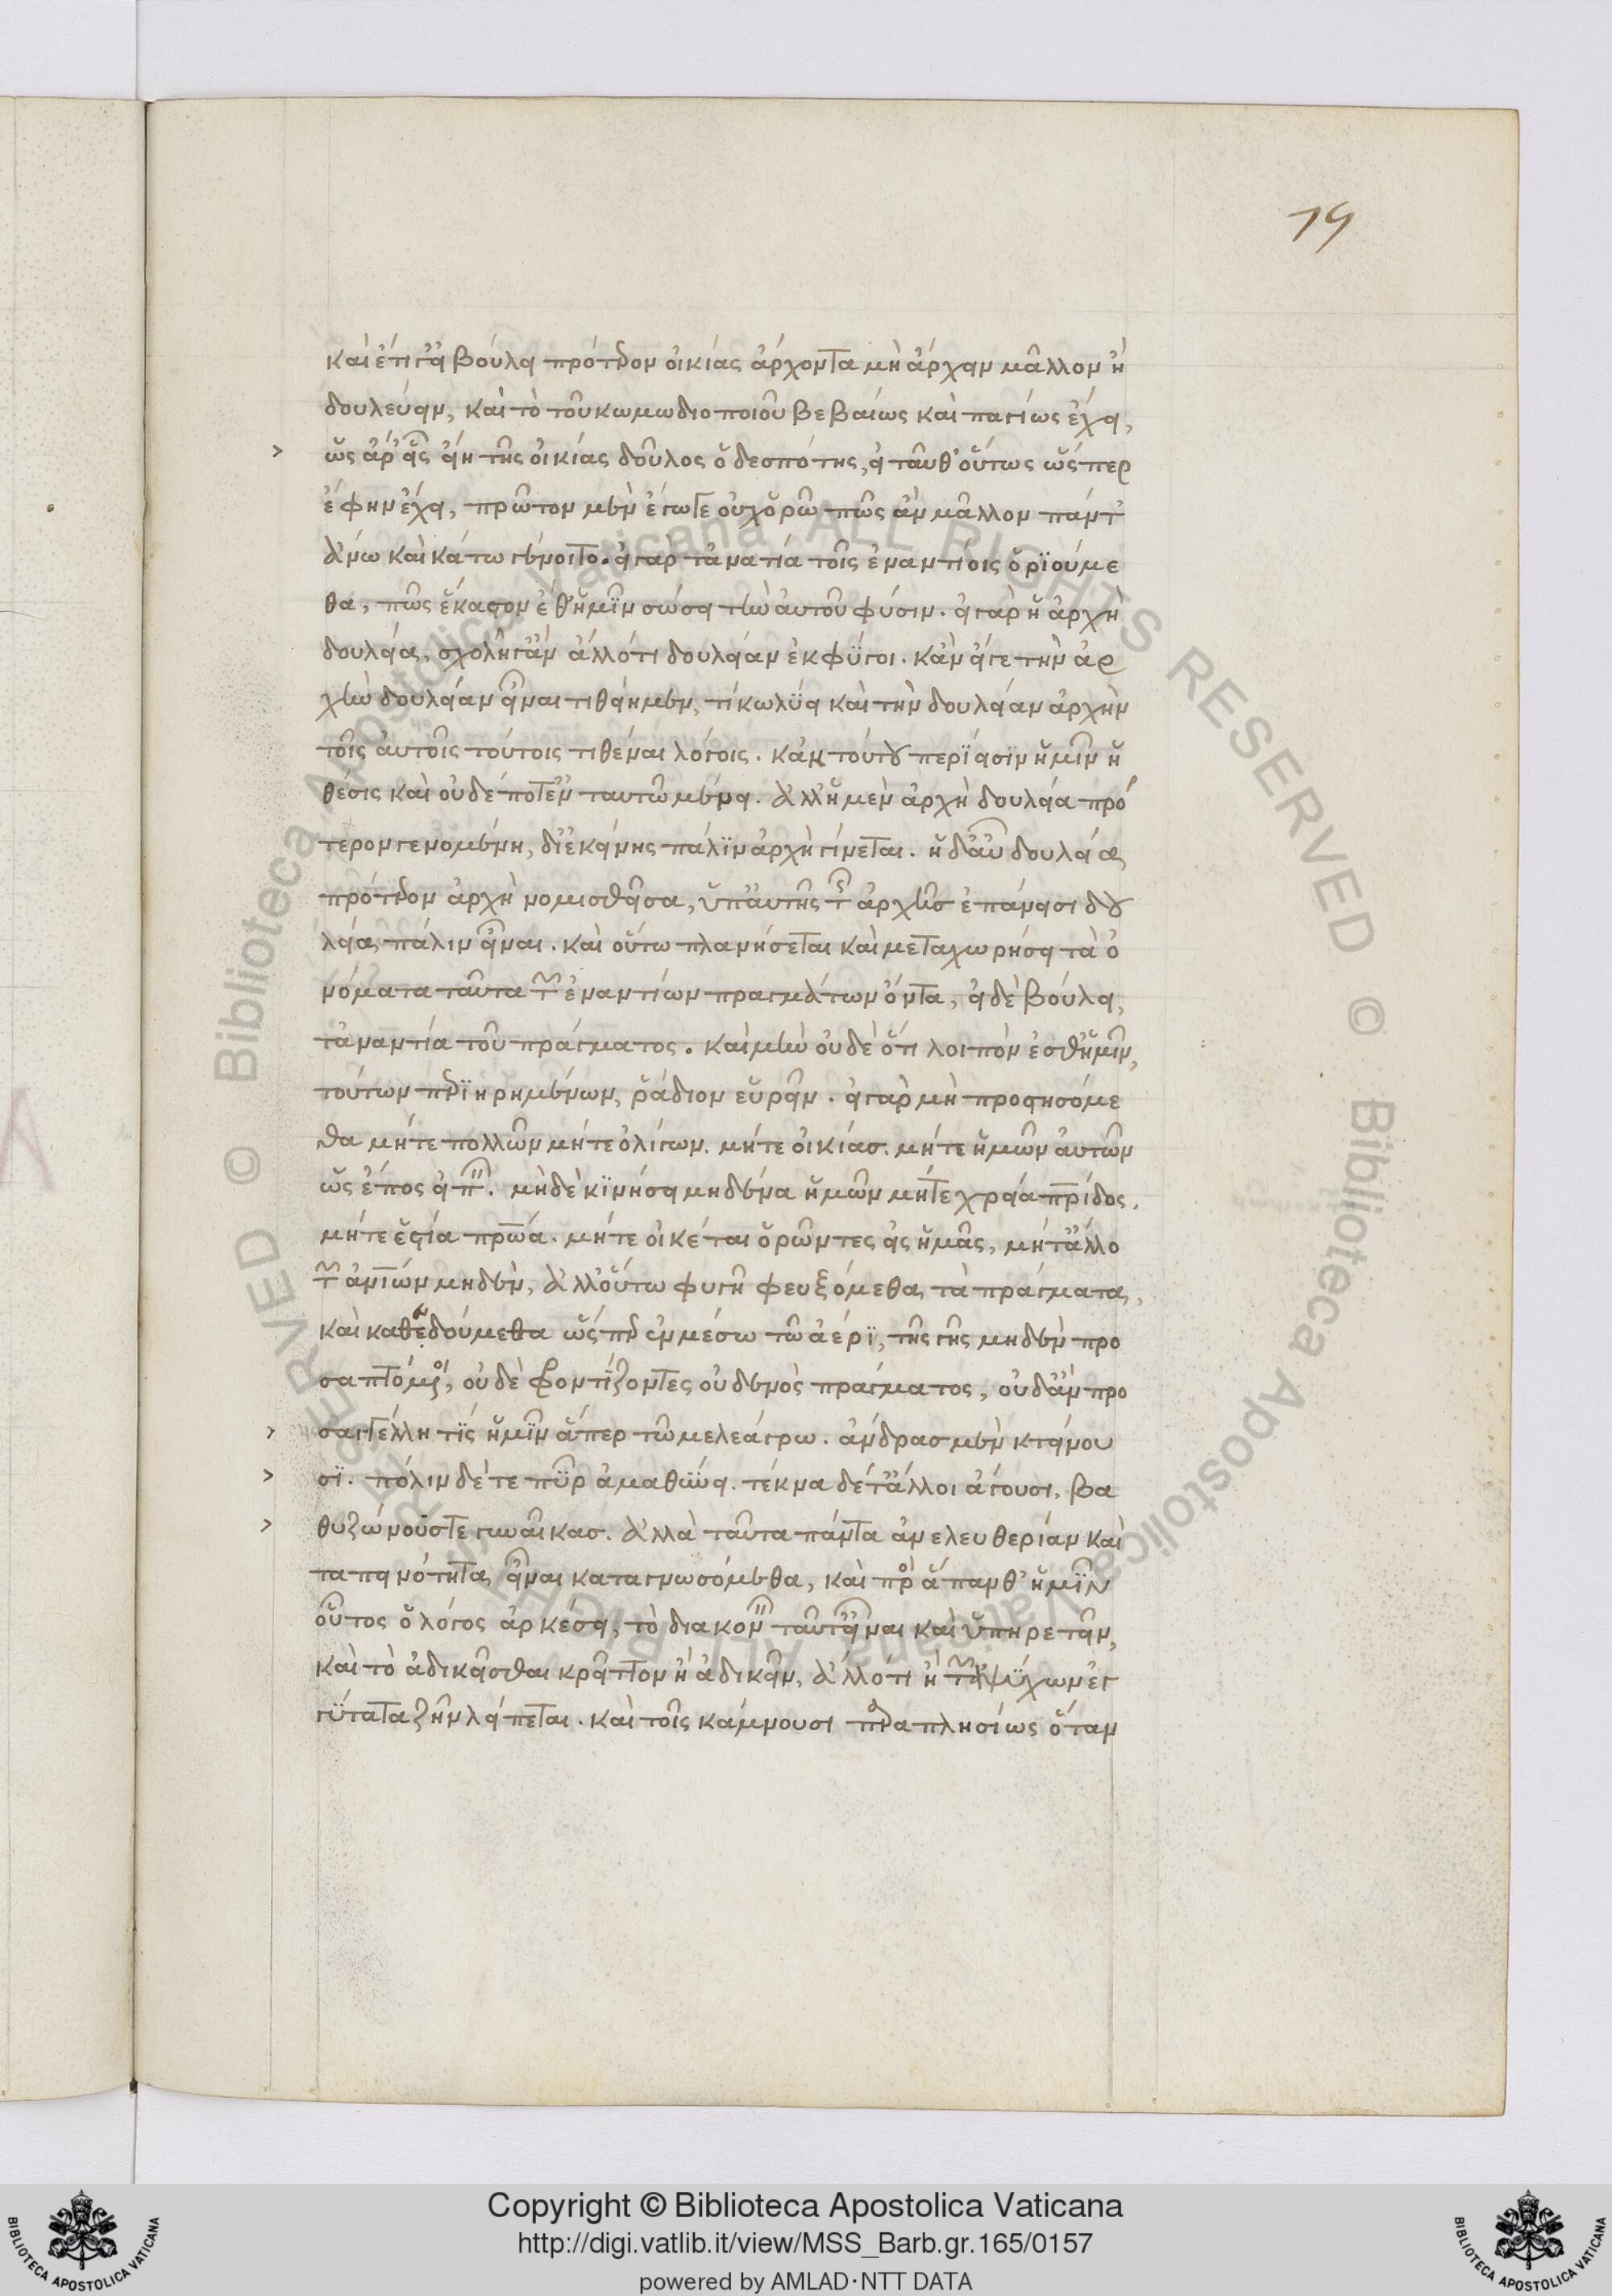 19
καὶ ἔτι γ' εἰ βούλει πρότερον οἰκίας ἄρχοντα μὴ ἄρχειν μᾶλλον ἢ
δουλεύειν, καὶ τὸ τοῦ κωμωδιοποιοῦ βεβαίως καὶ παγίως ἔχει,
> ὡς ἄρ' εἷς εἴη τῆς οἰκίας δοῦλος ὁ δεσπότης, εἰ ταῦθ' οὕτως ὥσπερ
ἔφην ἔχει, πρῶτον μὲν ἔγωγε οὐχ ὁρῶ πῶς ἂν μᾶλλον πάντ'
ἄνω καὶ κάτω γένοιτο. εἰ γὰρ τἀναντία τοῖς ἐναντίοις ὁριούμε
θα, πῶς ἕκαστον ἔθ' ἡμῖν σώσει τὴν αὑτοῦ φύσιν. εἰ γὰρ ἡ ἀρχὴ
δουλεία, σχολῇ γ' ἂν ἄλλό τι δουλείαν ἐκφύγοι. κἂν εἴ γε τὴν ἀρ
χὴν δουλείαν εἶναι τιθείημεν, τί κωλύει καὶ τὴν δουλείαν ἀρχὴν
τοῖς αὐτοῖς τούτοις τιθέναι λόγοις. κἀκ τούτου περίεισιν ἡμῖν ἡ
θέσις καὶ οὐδέποτ' ἐν ταυτῶ μένει. ἀλλ' ἡ μὲν ἀρχὴ δουλεία πρό
τερον γενομένη, δι' ἐκείνης πάλιν ἀρχὴ γίνεται. ἡ δ' αὖ δουλεία
πρότερον ἀρχὴ νομισθεῖσα, ὑπ' αὐτῆς τῆς ἀρχῆς ἐπάνεισι δου
λεία πάλιν εἶναι. καὶ οὕτω πλανήσεται καὶ μεταχωρήσει τὰ ὀ
νόματα ταῦτα τῶν ἐναντίων πραγμάτων ὄντα, εἰ δὲ βούλει,
τἀναντία τοῦ πράγματος. καὶ μὴν οὐδὲ ὅ,τι λοιπόν ἐσθ' ἡμῖν,
τούτων περιῃρημένων, ῥάδιον εὑρεῖν. εἰ γὰρ μὴ προστησόμε
θα μήτε πολλῶν μήτε ὀλίγων. μήτε οἰκίας. μήτε ἡμῶν αὐτῶν
ὡς ἔπος εἰπεῖν. μηδὲ κινήσει μηδένα ἡμῶν μήτε χρεία πατρίδος.
μήτε ἑστία πατρῴα. μήτε οἰκέται ὁρῶντες εἰς ἡμᾶς, μήτ' ἄλλο
τῶν ἁπάντων μηδὲν, ἀλλ' οὕτω φυγῇ φευξόμεθα τὰ πράγματα,
καὶ καθεδούμεθα ὥσπερ ἐν μέσω τῶ ἀέρι, τῆς γῆς μηδὲν προ
σαπτόμενοι, οὐδὲ φροντίζοντες οὐδενὸς πράγματος, οὐδ' ἂν προ
> σαγγέλλη τίς ἡμῖν ἅπερ τῶ μελεάγρω. ἄνδρας μὲν κτείνου
> σι. πόλιν δέ τε πῦρ ἀμαθύνει. τέκνα δέ τ' ἄλλοι ἄγουσι, βα
> θυζώνους τε γυναῖκας. ἀλλὰ ταῦτα πάντα ἀνελευθερίαν καὶ
ταπεινότητα εἶναι καταγνωσόμεθα, καὶ πρὸς ἅπανθ' ἡμῖν
οὗτος ὁ λόγος ἀρκέσει, τὸ διακονεῖν ταῦτ' εἶναι καὶ ὑπηρετεῖν,
καὶ τὸ ἀδικεῖσθαι κρεῖττον ἢ ἀδικεῖν, ἄλλό τι ἢ τῶν ἀψύχων ἐγ
γύτατα ζῆν λείπεται. καὶ τοῖς κάμνουσι παραπλησίως ὅταν
Copyright © Biblioteca Apostolica Vaticana
http://digi.vatlib.it/view/MSS_Barb.gr.165/0157
powered by AMLAD·NTT DATA